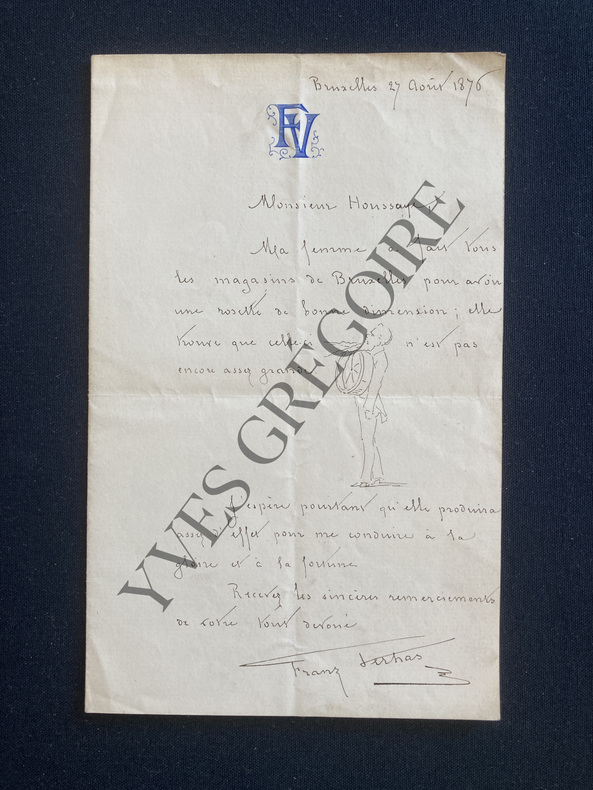 Bruxelles 27 Août 1876
FV
Monsieur Houssaye,
Ma femme a fait tous
les magasins de Bruxelles pour avoir
une rosette de bonne dimension ; elle
trouve que celle-ci n'est pas
encore assez grande
J'espère pourtant qu'elle produira
assez d'effet pour me conduire à la
gloire et à la fortune
Recevez les sincères remerciements
de votre tout dévoué
Franz Verhas
YVES GREGOIRE